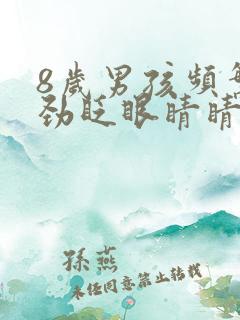 8岁男孩频
劲眨眼睛睛
孫燕
未任同意禁止转载